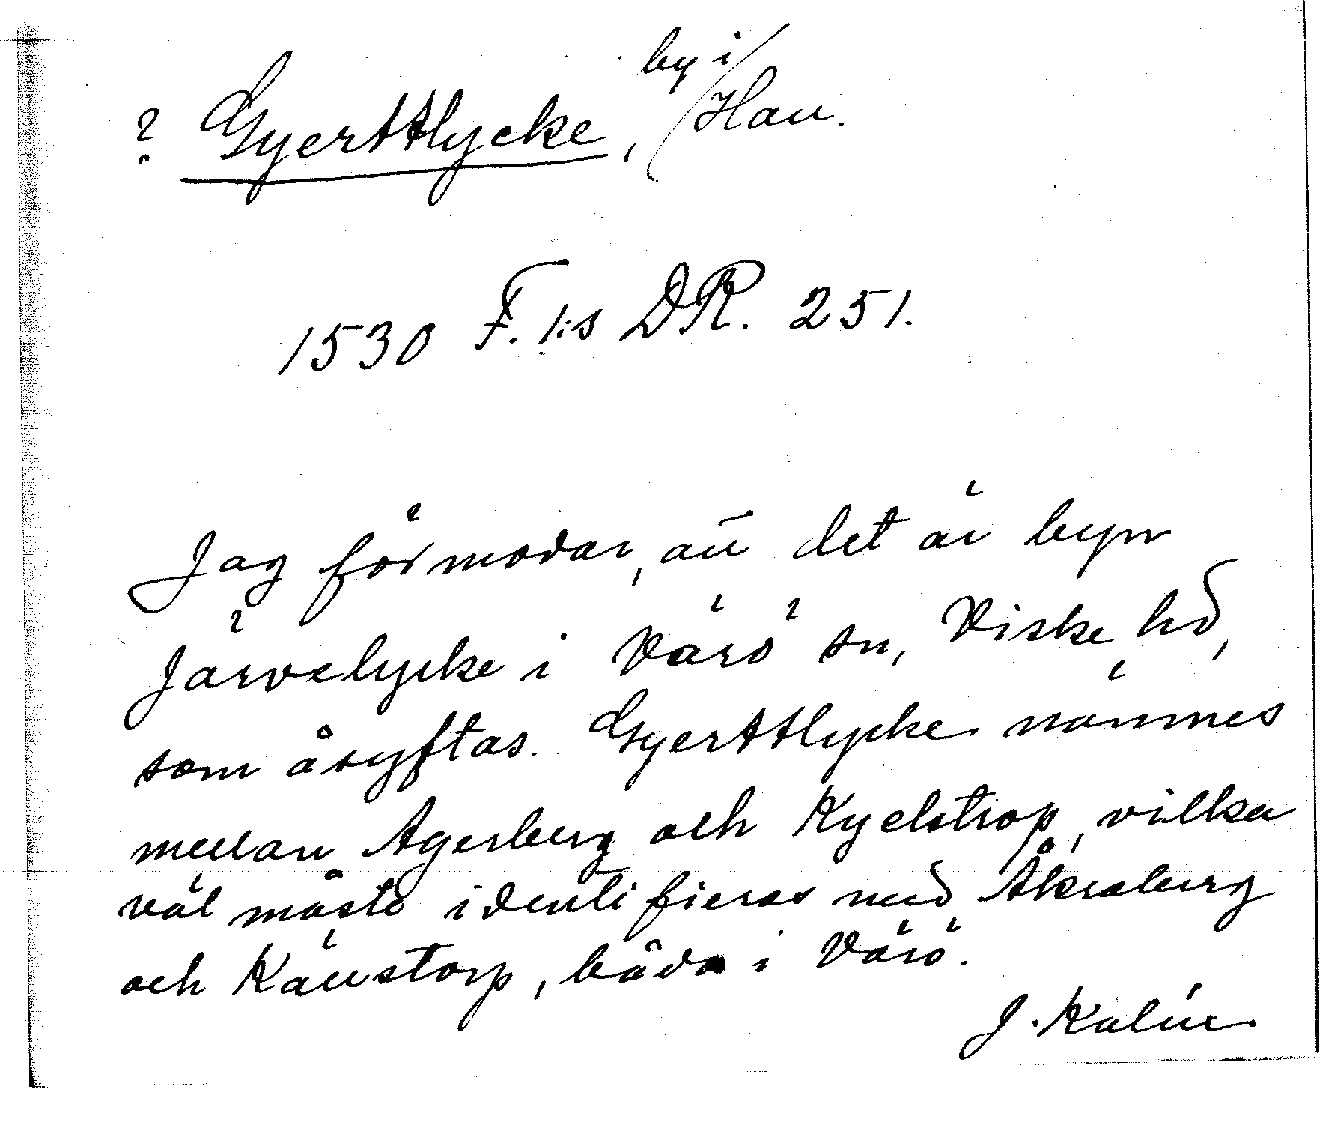 ? Gyerttlycke, by i Hall.
1530 F. I:s DR. 251.
Jag förmodar, att det är byn
Järvelycke i Värö sn, Viske hd,
som åsyftas. Gyerttlycke nämnes
mellan Agerberg och Kyelstrop, vilka
väl måste identifieras med Åkraberg
och Källstorp, båda i Värö.
J. Kalén.